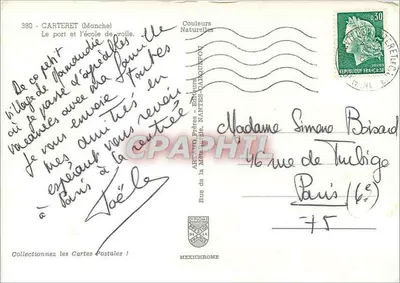 380 - CARTERET (Manche)
Le port et l'école de voile.
Couleurs
Naturelles
0,30
REPUBLIQUE FRANCAISE
De ce petit
village de Normandie
où je passe d'agréables
vacances avec ma famille
Je vous envoie toutes
mes amitiés en
espérant vous revoir
à Paris à la rentrée
Joële
Madame Simone Boisard
46 rue de
Paris (6e)
75
CPAPHIL
Rue de la
NANTES-CARQUEFOU
Collectionnez les Cartes Postales !
MEXICHROME